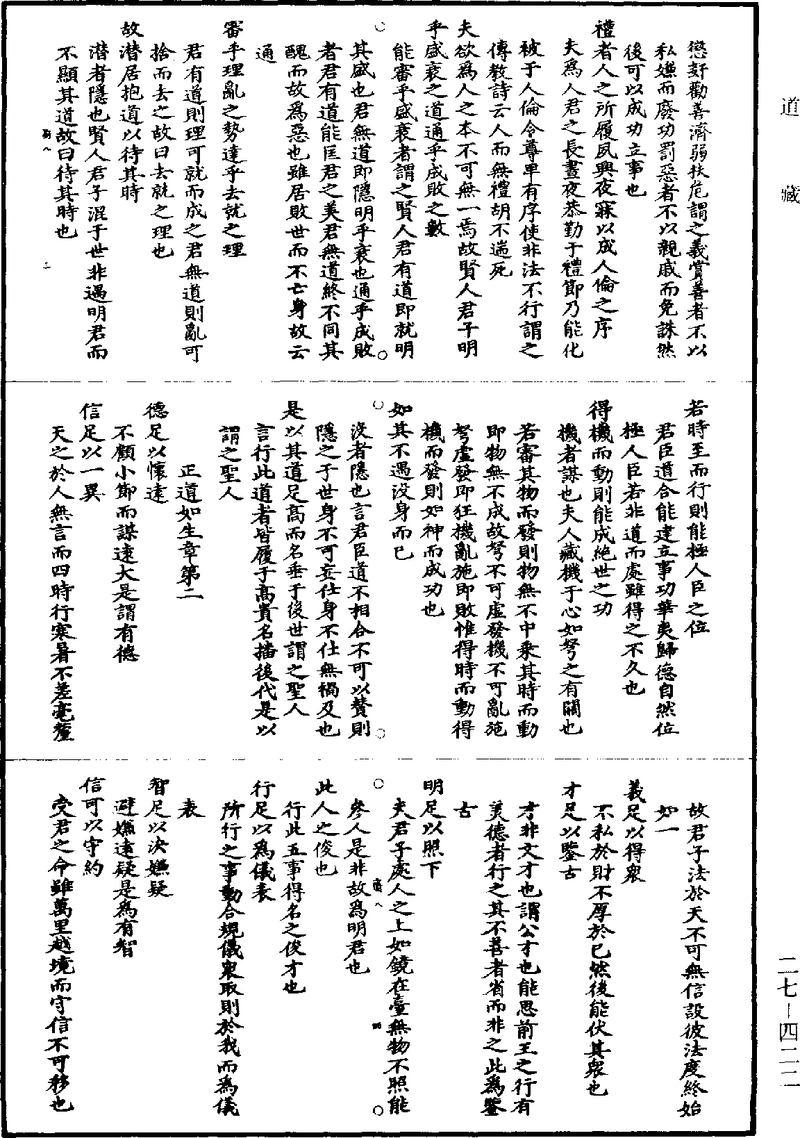 道藏
懲奸勸善濟弱扶危謂之義賞善者不以
私嫌而廢功罰惡者不以親戚而免誅然
後可以成功立事也
禮者人之所履夙興夜寐以成人倫之序
夫為人君之長晝夜恭勤于禮節乃能化
被于人倫令尊卑有序使非法不行謂之
傳教詩云人而無禮胡不遄死
夫欲為人之本不可無一焉故賢人君子明
乎盛衰之道通乎成敗之數
能審乎盛衰者謂之賢人君有道即就明
其盛也君無道即隱明乎衰也通乎成敗
者君有道能匡君之美君無道終不同其
醜而故為惡也雖居敗世而不亡身故云
通
審乎理亂之勢達乎去就之理
君有道則理可就而成之君無道則亂可
捨而去之故曰去就之理也
故潛居抱道以待其時
潛者隱也賢人君子混于世非遇明君而
不顯其道故曰待其時也
若時至而行則能極人臣之位
君臣道合能建立事功華夷歸德自然位
極人臣若非道而處雖得之不久也
得機而動則能成絕世之功
機者謀也夫人藏機于心如弩之有關也
若審其物而發則物無不中乘其時而動
即物無不成故弩不可虛發機不可亂施
弩虛發即狂機亂施即敗惟得時而動得
機而發則如神而成功也
如其不遇沒身而已
沒者隱也言君臣道不相合不可以贊則
隱之于世身不可妄仕身不仕無禍及也
是以其道足高而名垂于後世謂之聖人
言行此道者皆履于高貴名播後代是以
謂之聖人
正道如生章第二
德足以懷遠
不顧小節而謀遠大是謂有德
信足以一異
天之於人無言而四時行寒暑不差毫釐
故君子法於天不可無信設彼法度終始
如一
義足以得衆
不私於財不厚於己然後能伏其衆也
才足以鑒古
才非文才也謂公才也能思前王之行有
美德者行之其不善者省而非之此為鑒
古
明足以照下
夫君子處人之上如鏡在臺無物不照能
參人是非故為明君也
此人之俊也
行此五事得名之俊才也
行足以為儀表
所行之事動合規儀衆取則於我而為儀
表
智足以決嫌疑
避嫌遠疑是為有智
信可以守約
受君之命雖萬里越境而守信不可移也
二七—四二二